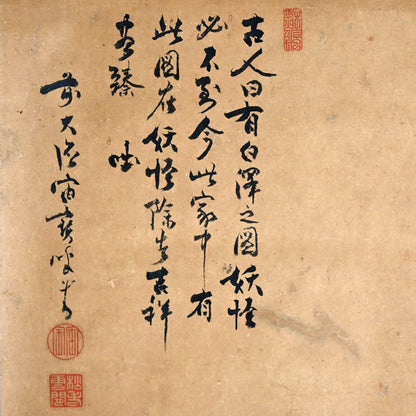 古人曰有白澤之圖妖怪
必不到今此家中有
此圖在妖怪除去吉祥
臻 咄
前大徳宙寶叟書